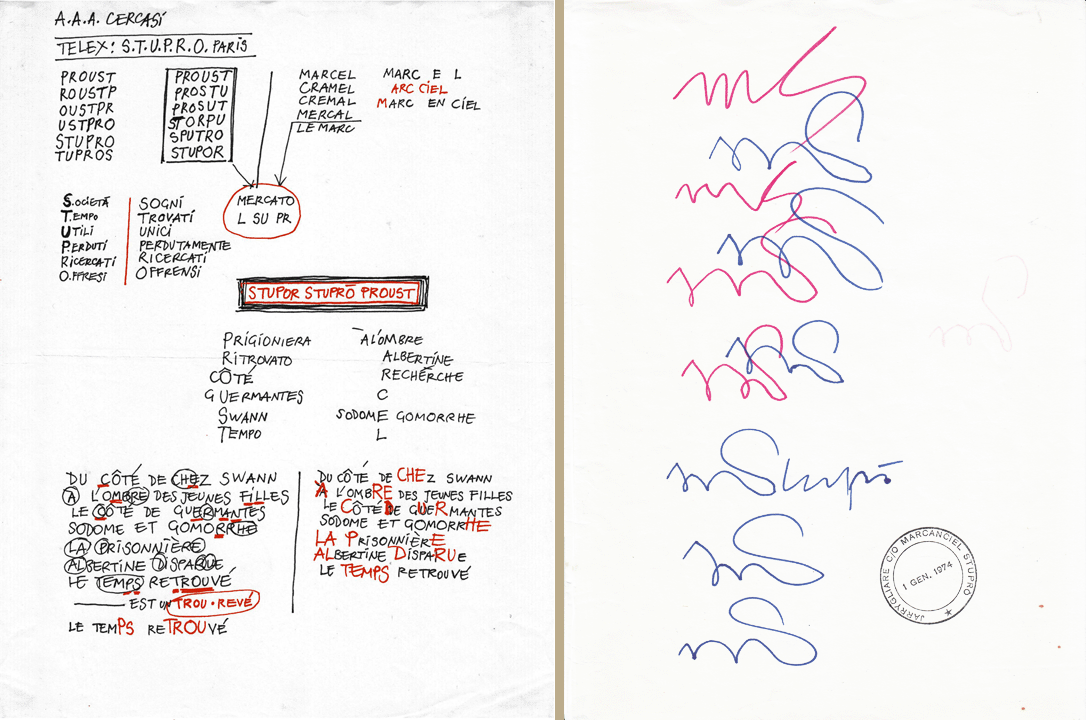 A.A.A. CERCASÍ
TELEX: S.T.U.P.R.O. PARÍS
PROUST
ROUSTP
OUSTPR
USTPRO
STUPRO
TUPROS
PROUST
PROSTU
PROSUT
STORPU
SPUTRO
STUPOR
MARCEL
CRAMEL
CREMAL
MERCAL
LE MARC
MARC E L
ARC CÍEL
MARC EN CÍEL
MERCATO
L SU PR
SOCIETÀ
TEMPO
UTILI
PERDUTÍ
RICERCATÍ
OFFRESI
SOGNÍ
TROVATÍ
UNICÍ
PERDUTAMENTE
RICERCATÍ
OFFRENSÍ
STUPOR STUPRŌ PROUST
PRIGIONIERA A L'OMBRE
RITROVATO ALBERTINE
CÔTÉ RECHERCHE
GUERMANTES C
SWANN SODOME GOMORRHE
TEMPO L
DU CÔTÉ DE CHEZ SWANN
A L'OMBRE DES JEUNES FILLES
LE CÔTÉ DE GUERMANTES
SODOME ET GOMORRHE
LA PRISONNIÈRE
ALBERTINE DISPARUE
LE TEMPS RETROUVÉ
EST UN TROU·REVÉ
LE TEMPS RETROUVÉ
DU CÔTÉ DE CHEZ SWANN
A L'OMBRE DES JEUNES FILLES
LE CÔTÉ DE GUERMANTES
SODOME ET GOMORRHE
LA PRISONNIÈRE
ALBERTINE DISPARUE
LE TEMPS RETROUVÉ
mS
mS
mS
mS
mS
mS
mS
mStupō
mS
mS
JARRYGLIARE C/O MARCANCIEL STUPRO
1 GEN. 1974